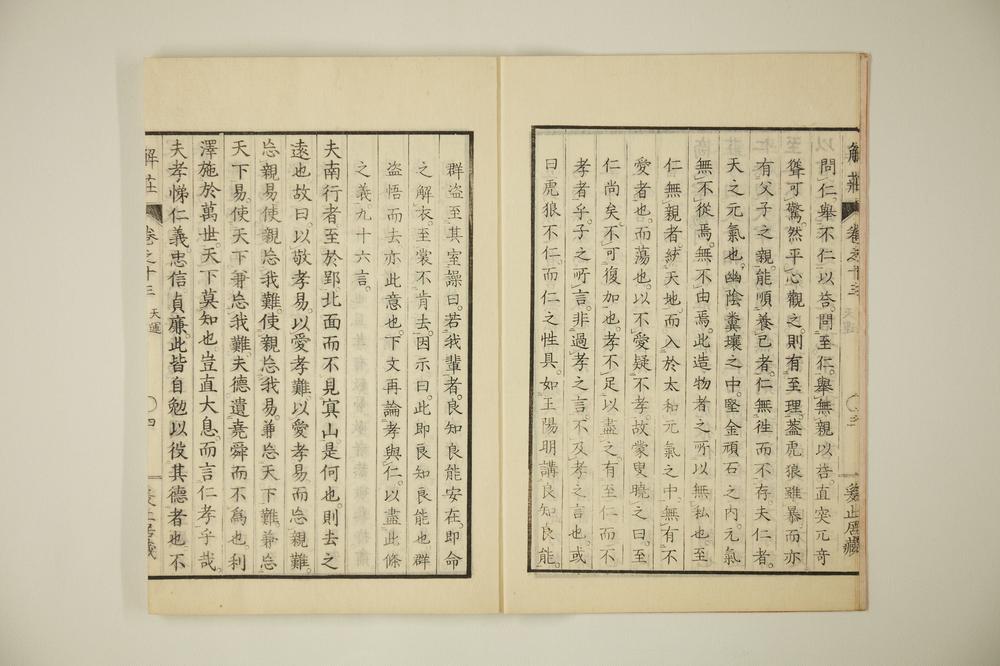 解莊 卷之十三 天運 三 爰止居藏
問仁。舉不仁以荅。問至仁。舉無親以荅。直突兀奇
聳可驚。然平心觀之。則有至理。葢虎狼雖暴。而亦
有父子之親。能順養已者。仁無徃而不存。夫仁者。
天之元氣也。幽陰糞壤之中。堅金頑石之內。元氣
無不從焉。無不由焉。此造物者之所以無私也。至
仁無親者。紡天地而入於太和元氣之中。無有不
愛者也。而蕩也。以不愛疑不孝。故蒙叟曉之曰。至
仁尚矣。不可復加也。孝不足以盡之。有至仁而不
孝者乎。子之所言。非過孝之言。不及孝之言也。或
曰。虎狼不仁。而仁之性具。如王陽明講良知良能。
群盜至其室譟曰。若我輩者。良知良能安在。即命
之解衣。至裳不肯去。因示曰。此即良知良能也。群
盜悟而去。亦此意也。下文再論孝與仁。以盡此條
之義。九十六言。
夫南行者。至於郢。北面而不見冥山。是何也。則去之
遠也。故曰。以敬孝易。以愛孝難。以愛孝易而忘親難。
忘親易。使親忘我難。使親忘我易。兼忘天下難。兼忘
天下易。使天下兼忘我難。夫德遺堯舜而不爲也。利
澤施於萬世。天下莫知也。豈直大息。而言仁孝乎哉。
夫孝悌仁義忠信貞廉。此皆自勉以役其德者也。不
解莊 卷之十三 天運 四